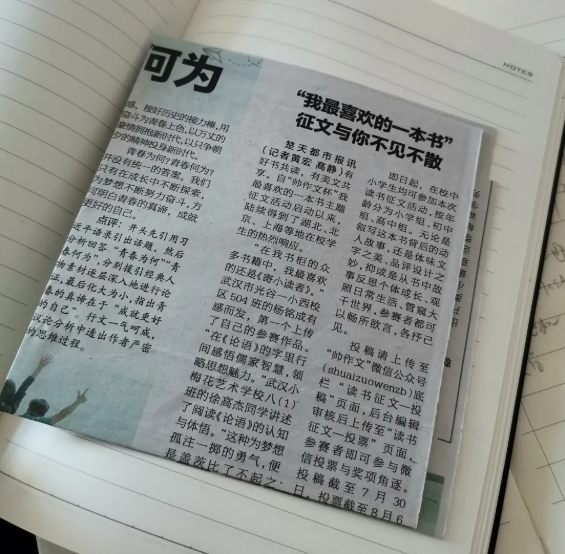 NOTES
何为
感，接好历史的接力棒，用
奋斗为青春上色，以万丈的
豪情拥抱新时代，以只争朝
夕的精神投身新时代。
青春为何？青春何为？
并没有统一的答案。我们
只有在成长中不断探索、
为梦想不断努力奋斗，方
可明白青春的真谛，成就
更好的自己。
点评：开头先引用习
近平语录引出话题，然后
分析回答“青春为何”“青
春何为”，分别援引经典人
物素材逐层深入地进行论
证，最后化大为小，指出青
春的真谛在于“成就更好
的自己”。行文一气呵成，
议论分析中透出作者严密
的思维过程。
“我最喜欢的一本书”
征文与你不见不散
楚天都市报讯
（记者黄宏 高静）有
好书共读，有美文共
享。自“帅作文杯”我
最喜欢的一本书主题
征文活动启动以来，
陆续得到了湖北、北
京、上海等地在校学
生的热烈响应。
“在我书柜的众
多书籍中，我最喜欢
的还是《寄小读者》。”
武汉市光谷一小西校
区504班的杨铭成有
感而发，第一个上传
了自己的参赛作品。
“在《论语》的字里行
间感悟儒家智慧，领
略思想魅力。”武汉小
梅花艺术学校八（1）
班的徐高杰同学讲述
了阅读《论语》的认知
与体悟。“这种为梦想
孤注一掷的勇气，便
是盖茨比了不起之
即日起，在校中
小学生均可参加本次
读书征文活动，按年
龄分为小学组、初中
组、高中组。无论是
叙写这本书背后的动
人故事，还是体味文
字之美、品评设计之
妙，抑或是从书中故
事反思个体成长、观
照日常生活、管窥大
千世界，参赛者都可
以畅所欲言，各抒己
见。
投稿请上传至
“帅作文”微信公众号
（shuaizuowenzb）底
栏“读书征文—投
稿”页面，后台编辑
审核后上传至“读书
征文—投票”页面，
参赛者即可参与微
信投票与奖项角逐。
投稿截至7月30
日，投票截至8月6